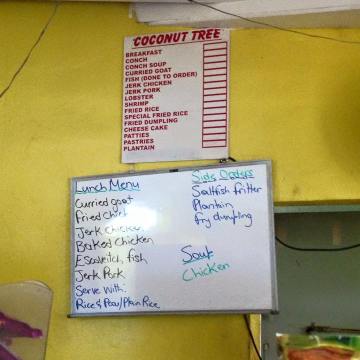 COCONUT TREE
BREAKFAST
CONCH
CONCH SOUP
CURRIED GOAT
FISH (DONE TO ORDER)
JERK CHICKEN
JERK PORK
LOBSTER
SHRIMP
FRIED RICE
SPECIAL FRIED RICE
FRIED DUMPLING
CHEESE CAKE
PATTIES
PASTRIES
PLANTAIN
Lunch Menu
Curried goat
Fried Chicken
Jerk Chicken
Baked Chicken
Escoveitch, fish
Jerk Pork
Serve with:
Rice & Peas/Plain Rice
Side Orders
Saltfish fritter
Plantain
fry dumpling
Soup
Chicken